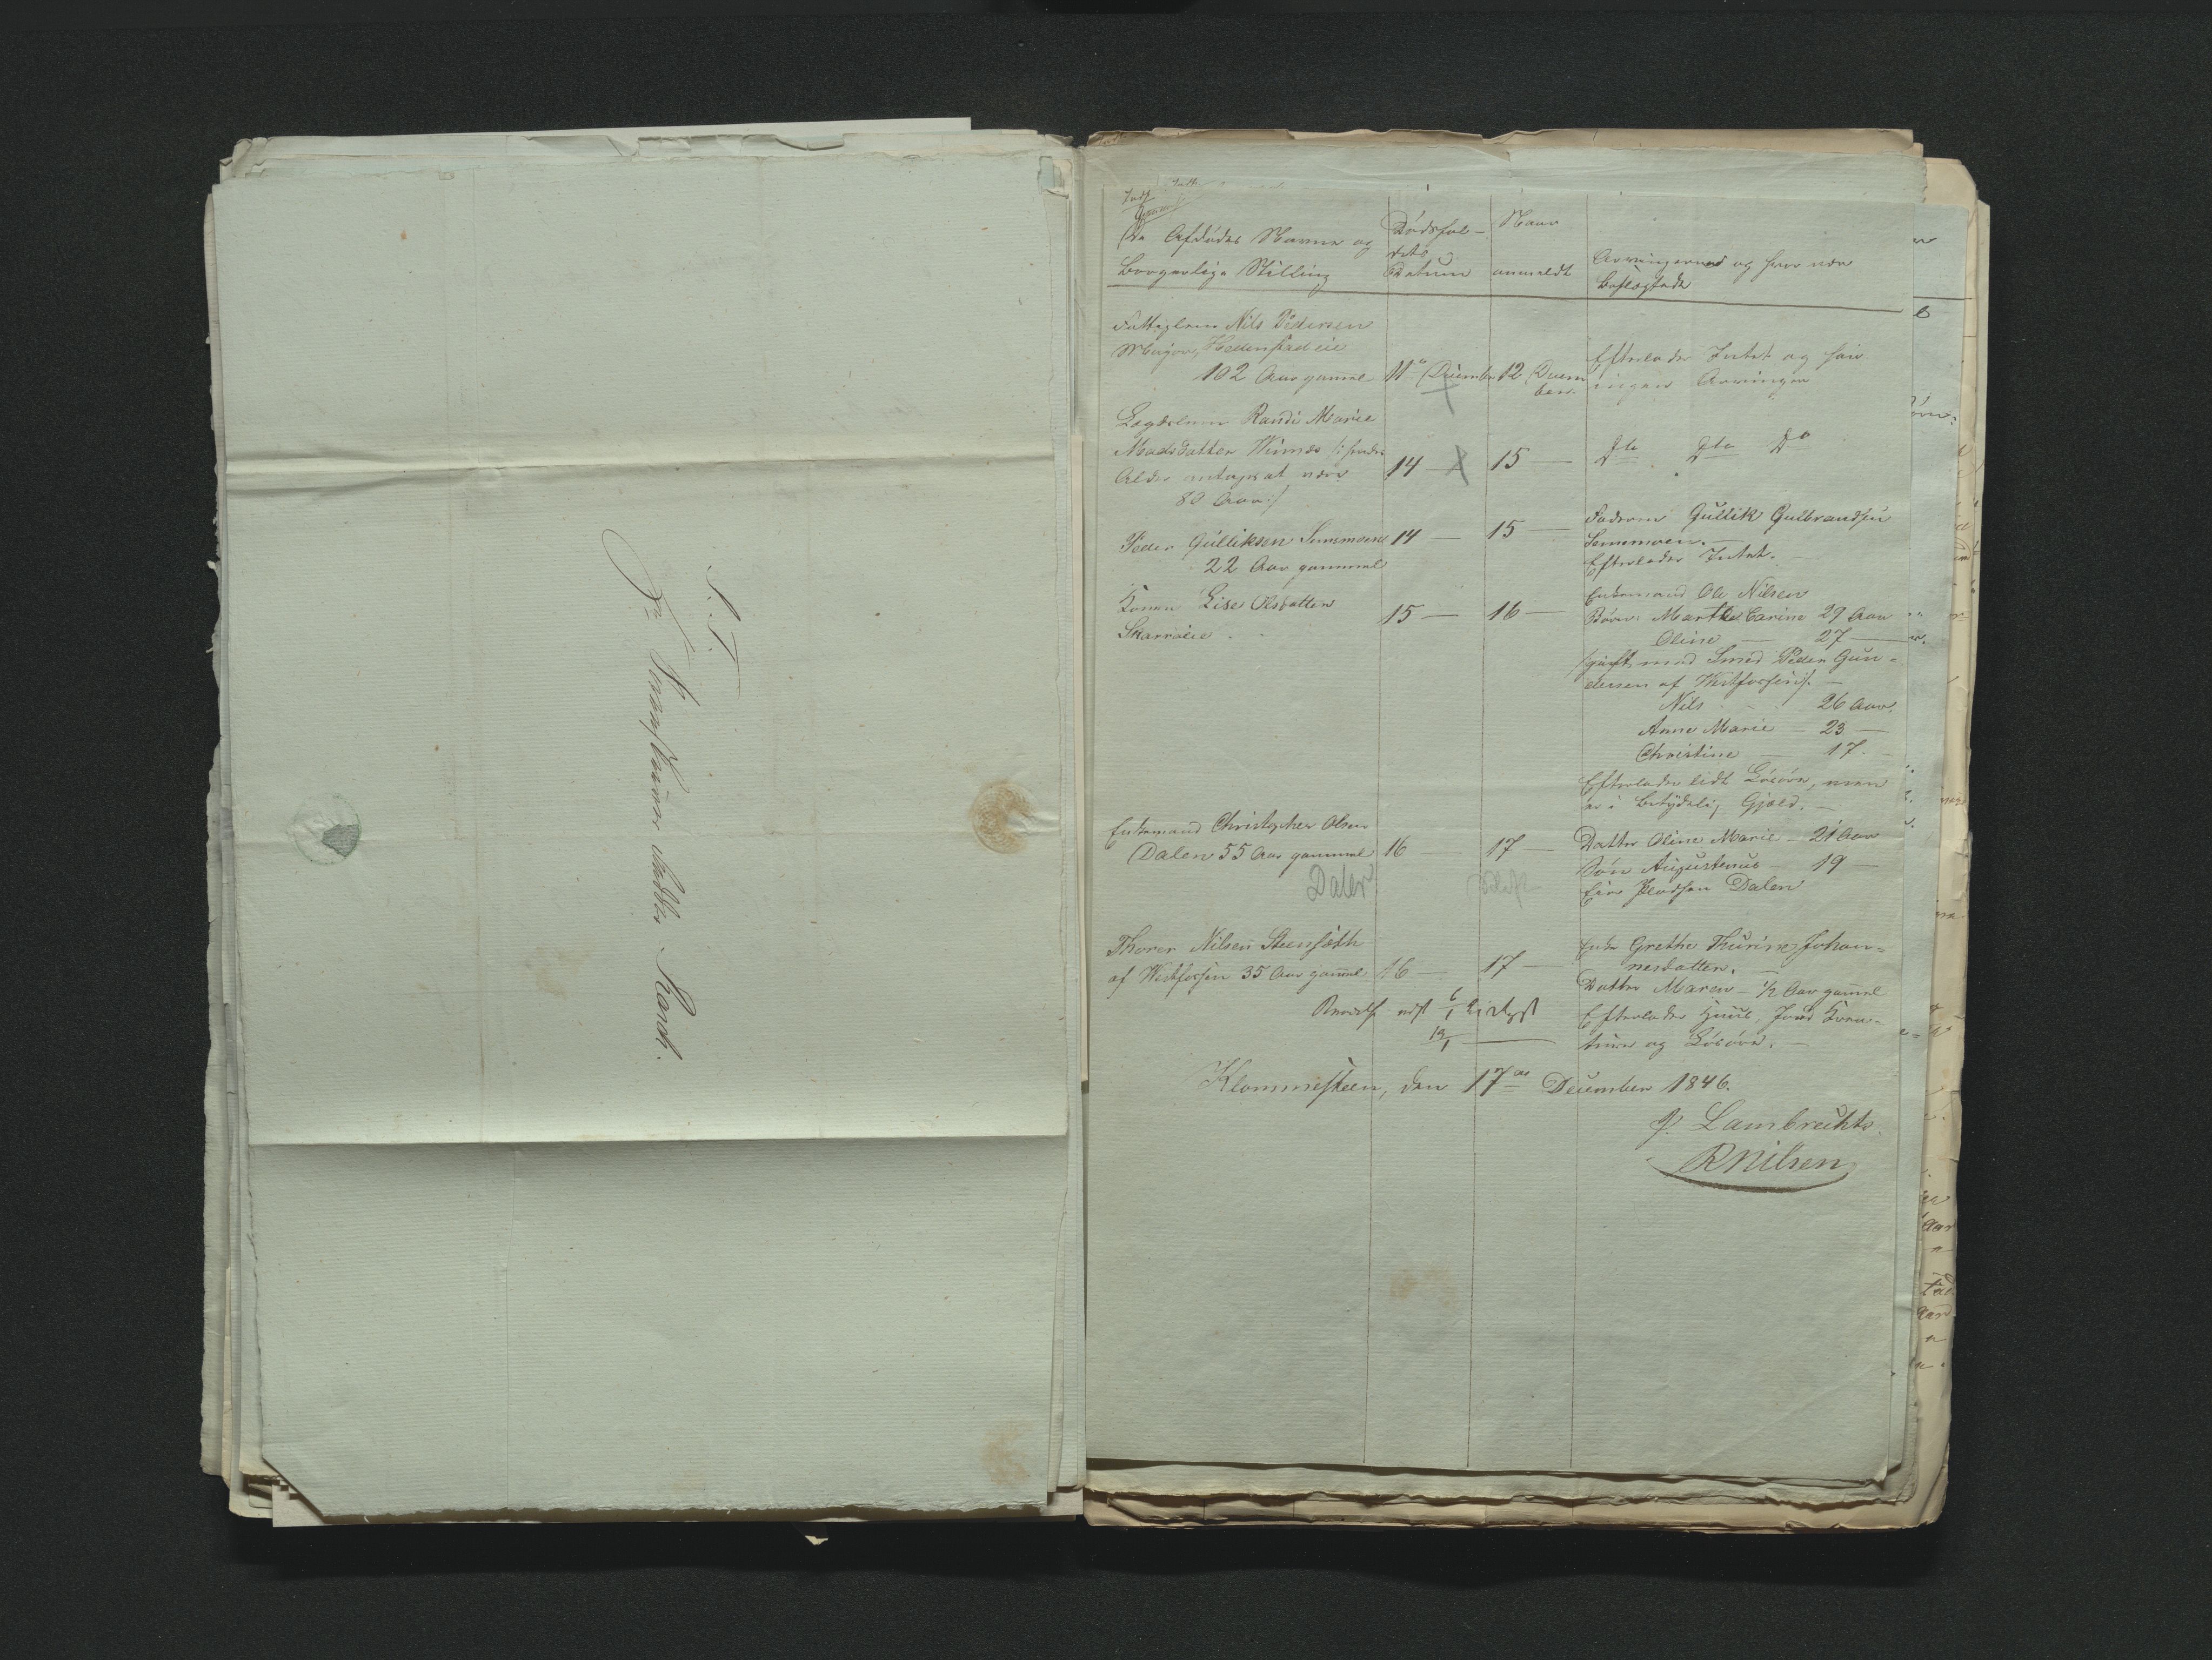 S. T.
Hr Sorenskriver
Indf
De Afdødes Navne og
Borgerlige Stilling
Dødsfal-
dets
Datum
Naar
anmeldt
Arvingernes og hvor nær
Beslægtede
Fattiglem Nils Pedersen
Hedenstadeie
102 Aar gammel
11te December
12 Decem
ber.
Efterlader Intet og har
ingen Arvinger
Lægdslem Randi Marie
Madsdatter
Alder antages at være
83 Aar :/
14 —
15 —
Do Do Do
Peder Gulliksen Semmoeneie
22 Aar gammel
14 —
15 —
Faderen Gullik Gulbrandsen
Semmoen. —
Efterlader Intet. —
Konen Lise Olsdatter
Skarraeie
15 —
16 —
Enkemand Ole Nilsen
Børn: Marthe Carine 29 Aar
Oline — 27 —
/gift med Smed Peder Gun-
dersen af Vestfossen/. —
Nils 26 Aar.
Anne Marie — 23 —
Christine — 17. —
Efterlader lidt Løsøre, men
er i betydelig Gjæld. —
Enkemand Christopher Olsen
Dalen 55 Aar gammel
16 —
17 —
Datter Oline Marie — 21 Aar
Søn Augustinus — 19 —
Eier Pladsen Dalen
Daler
Thorer Nilsen Steensæth
af Vestfossen 35 Aar gammel
16 —
17 —
Enke Grethe Thurine Johan-
nesdatter.
Datter Maren — 1/2 Aar gammel
Efterlader Huus, Jord Krea-
turer og Løsøre. —
6/1
13/1 —
Klommesteen, den 17de December 1846.
P. Lambrechts.
RNilsen